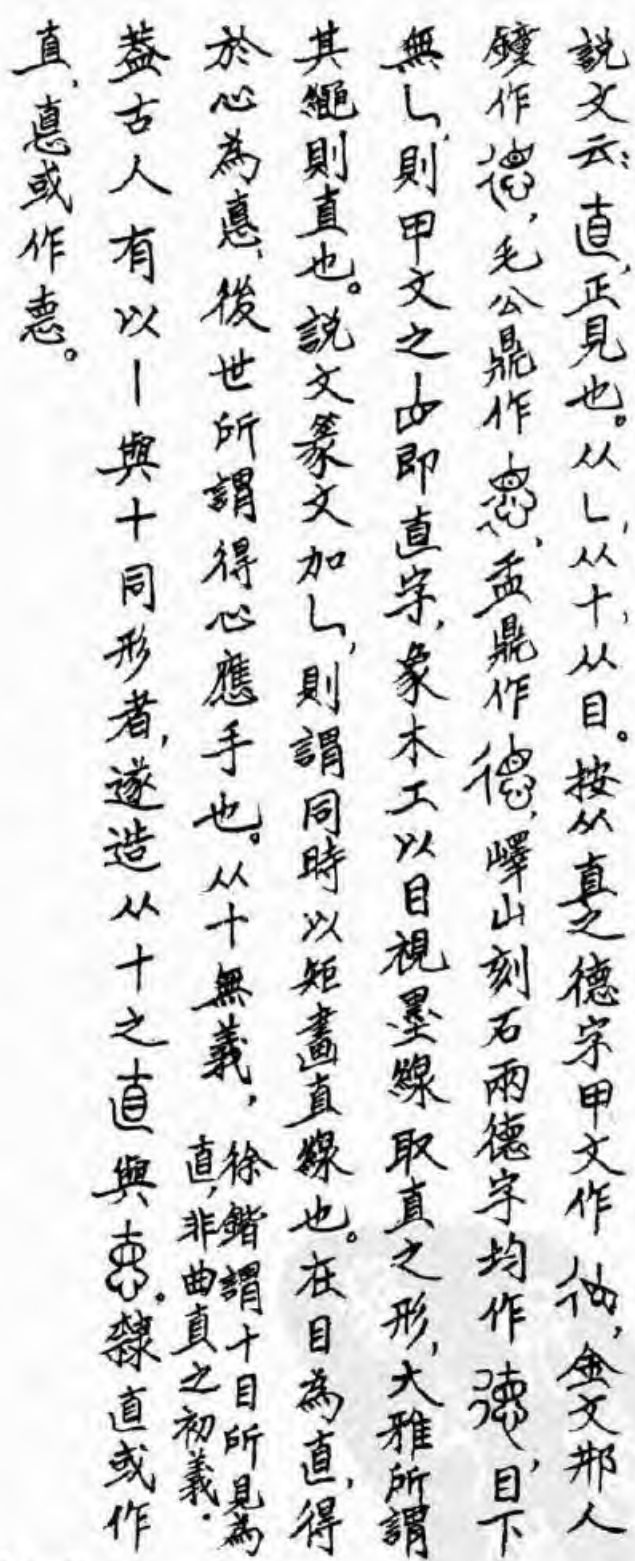 説文云：直，正見也。从乚，从十，从目。按从直之德字甲文作，金文邢人
鐘作，毛公鼎作，盂鼎作，嶧山刻石兩德字均作，目下
無乚，則甲文之即直字，象木工以目視墨線取直之形，大雅所謂
其繩則直也。説文篆文加乚，則謂同時以矩畫直線也。在目為直，得
於心為悳，後世所謂得心應手也。从十無義，徐鍇謂十目所見為直，非曲直之初義。
蓋古人有以丨與十同形者，遂造从十之直與悳。隸直或作
直，悳或作惪。